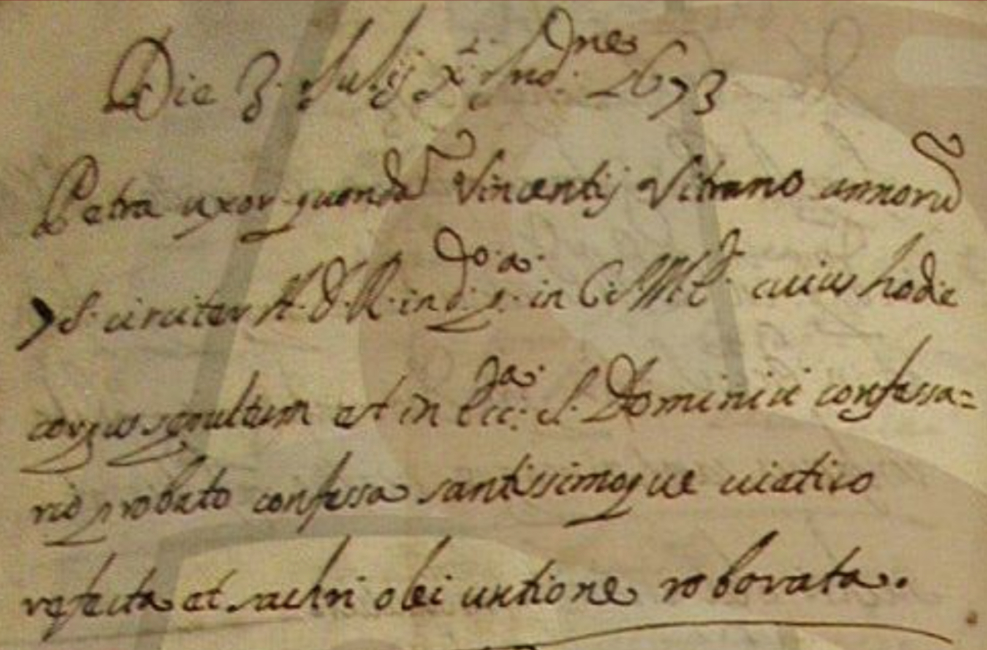 Die 3. Julij xi. Ind.nes 1673
Petra uxor quondã Vincentij Vitrano annorũ
75. circiter H. D. R. in d.o a. in C. S. M. E. cuius hodie
corpus sepultum est in Ecc.ia S. Dominici confessa=
rio probato confessa santissimoque uiatico
refecta et sacri olei untione roborata.